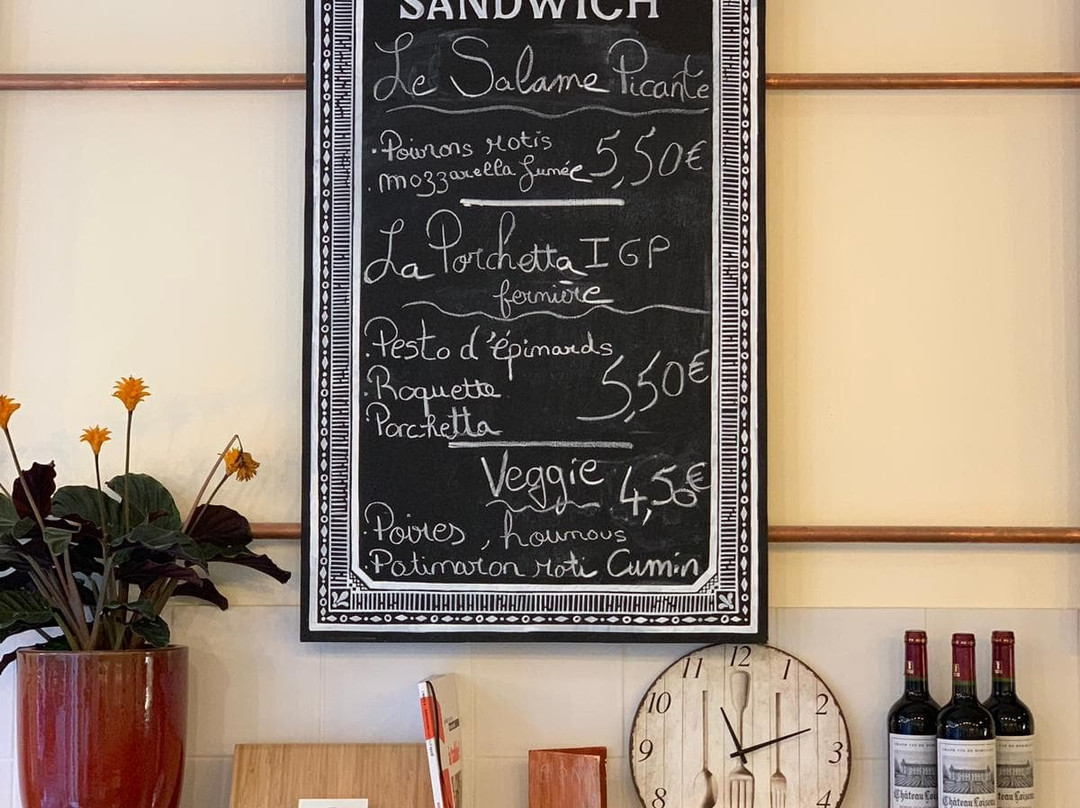 SANDWICH
Le Salame Picante
• Poivrons rotis
• mozzarella fumée 5,50€
La Porchetta IGP
fermière
• Pesto d'épinards
• Roquette 5,50€
Porchetta
Veggie 4,50€
• Poires, houmous
• Potimaron roti Cumin
12
11 1
10 2
9 3
8 4
GRAND VIN DE BORDEAUX
Château